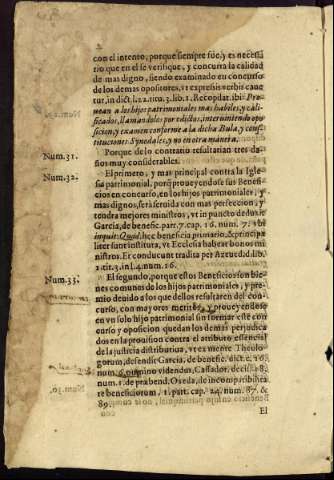 con el intento, porque siempre fue, y es necessa
rio que en el se verifique, y concurra la calidad
de mas digno, siendo examinado en concurso
de los demas opositores, vt expresis verbis caue
tur, in dict. l.2. titu.3. lib.1. Recopilat. ibi: Pro
uean a los hijos patrimoniales mas habiles, y cali
ficados, llamandolos por edictos, interuiniendo opo
sicion, y examen conforme a la dicha Bula, y consti
tuciones Synodales, y no en otra manera.
Num.31. Porque de lo contrario resultarian tres da-
ños muy considerables.
Num.32. El primero, y mas principal contra la Igle-
sia patrimonial, porq̃ proueyendose sus Benefi-
cios en concurso, en los hijos patrimoniales, y
mas dignos, será seruida con mas perfeccion, y
tendra mejores ministros, vt in puncto deduxit
Garcia, de benefic. part.7. cap. 16. num. 7. ibi
inquit: Quod hæc beneficia primario, & principa
liter sunt institura, vt Ecclesia habeat bonos mi
nistros. Et conducunt tradita per Azeued. d. lib.
1. tit.3. in l.4. num.16.
Num.33. El segundo, porque estos Beneficios son bie
nes comunes de los hijos patrimoniales, y pre-
mio deuido a los que dellos resultaren del con-
curso, con mayores meritos, y proueyendose
en vn solo hijo patrimonial sin formar este con
curso y oposicion quedan los demas perjudica
dos en la prouision contra el atributo essencial
de la justicia distributiua, vt ex mente Theolo-
gorum, defendit Garcia, de benefic. dict. c. 16.
num. 6. omnino videndus, Cassador. decis. 8.
num. 1. de præbend. Oxeda, de incompatibilita
te beneficiorum, 1. part. cap. 24. num. 87. &
89.
El